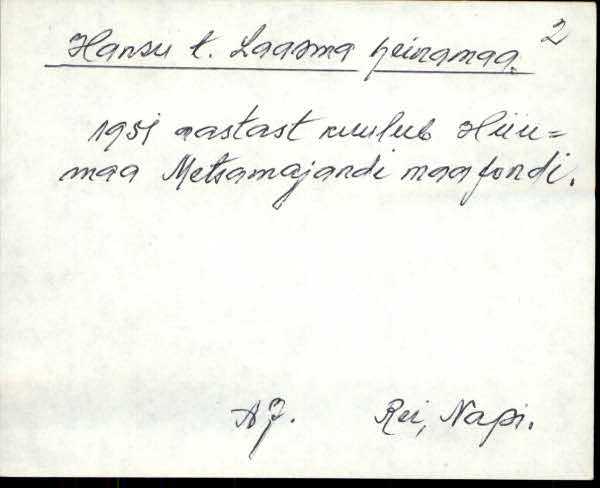 2
Hansu t. Laasma heinamaa.
1951 aastast kuulub Hiiu=
maa Metsamajandi maafondi.
AJ. Rei, Napi.